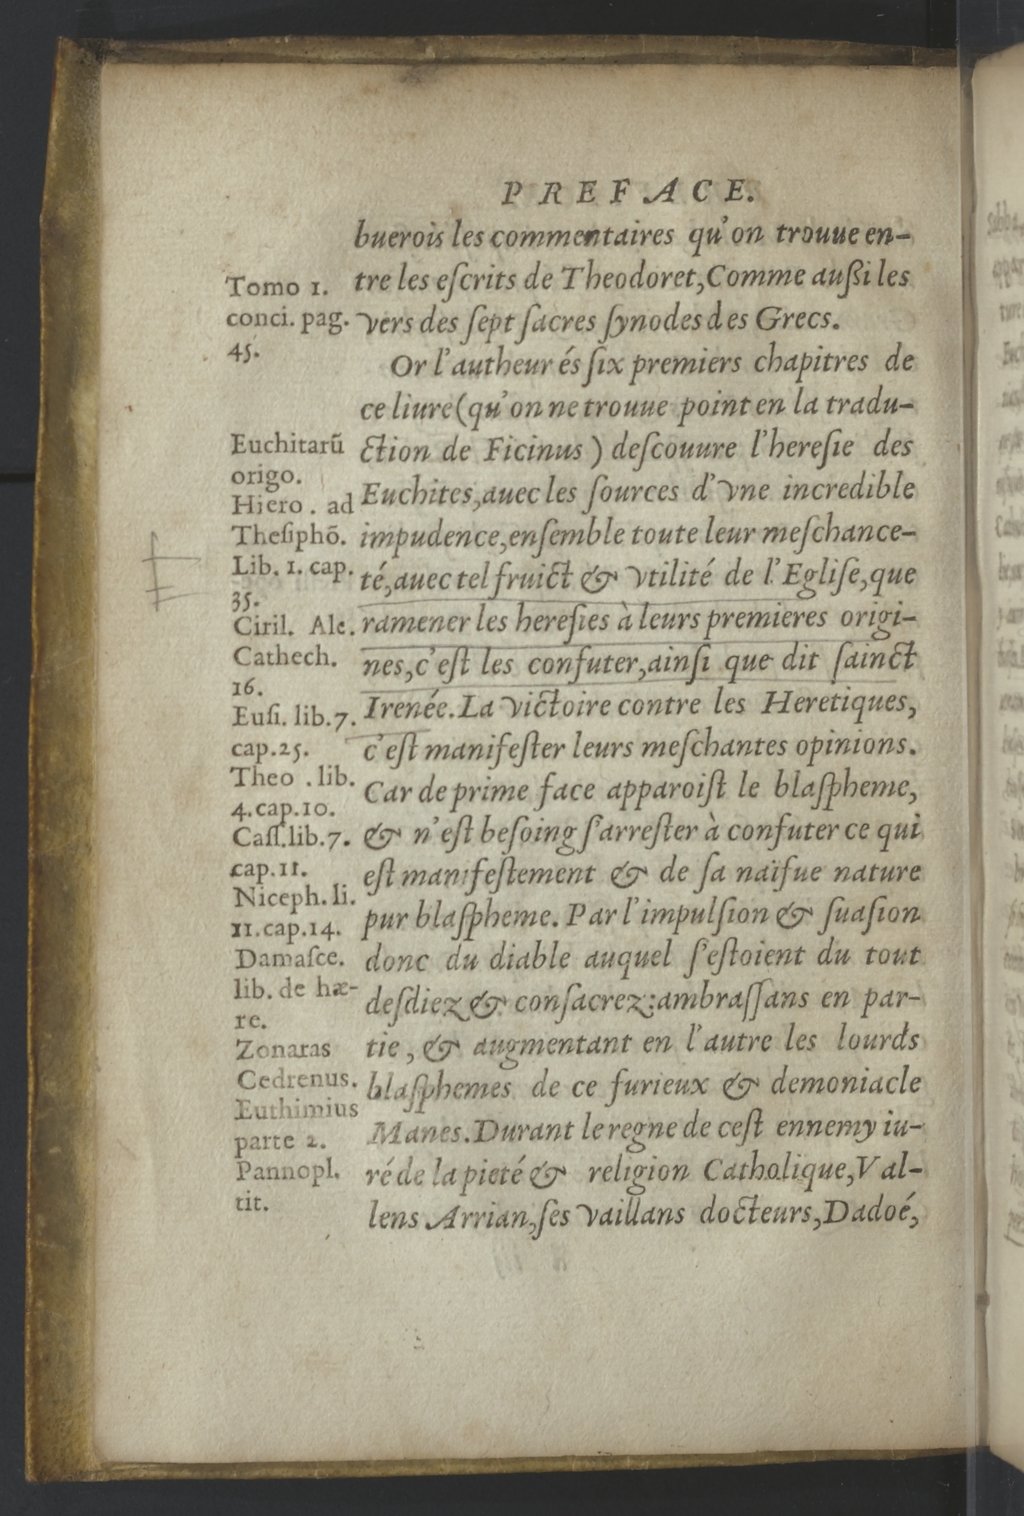 PREFACE.
buerois les commentaires qu'on trouue en-
tre les eſcrits de Theodoret, Comme außi les
vers des ſept ſacres ſynodes des Grecs.
Or l'autheur és ſix premiers chapitres de
ce liure (qu'on ne trouue point en la tradu-
ction de Ficinus) deſcouure l'hereſie des
Euchites, auec les ſources d'vne incredible
impudence, enſemble toute leur meſchance-
té, auec tel fruict & vtilité de l'Egliſe, que
ramener les hereſies à leurs premieres origi-
nes, c'eſt les confuter, ainſi que dit ſainct
Irenée. La victoire contre les Heretiques,
c'eſt manifeſter leurs meſchantes opinions.
Car de prime face apparoiſt le blaſpheme,
& n'eſt beſoing ſ'arreſter à confuter ce qui
eſt manifeſtement & de ſa naïfue nature
pur blaſpheme. Par l'impulſion & ſuaſion
donc du diable auquel ſ'eſtoient du tout
deſdiez & conſacrez: ambraſſans en par-
tie, & augmentant en l'autre les lourds
blaſphemes de ce furieux & demoniacle
Manes. Durant le regne de ceſt ennemy iu-
ré de la pieté & religion Catholique, Val-
lens Arrian, ſes vaillans docteurs, Dadoé,
Tomo 1.
conci. pag.
45.
Euchitarū
origo.
Hiero. ad
Theſiphō.
Lib. 1. cap.
35.
Ciril. Ale.
Cathech.
16.
Euſi. lib. 7.
cap. 25.
Theo. lib.
4. cap. 10.
Caſſ. lib. 7.
cap. 11.
Niceph. li.
11. cap. 14.
Damaſce.
lib. de hæ-
re.
Zonaras
Cedrenus.
Euthimius
parte 2.
Pannopl.
tit.